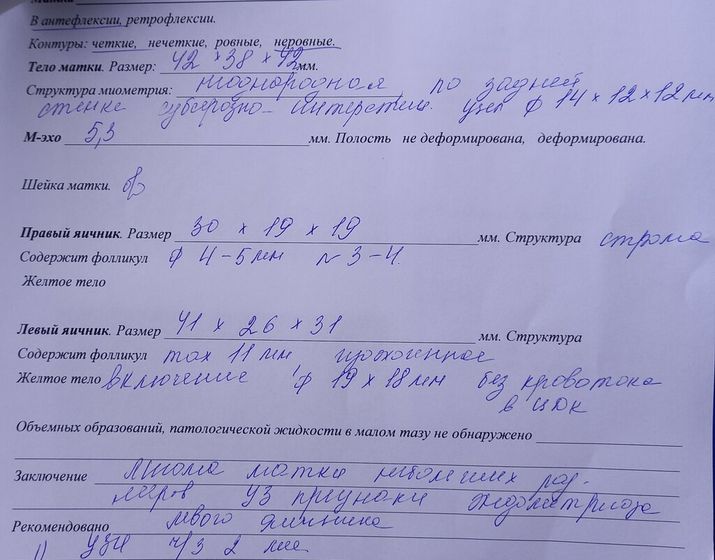 В антефлексии, ретрофлексии.
Контуры: четкие, нечеткие, ровные, неровные.
Тело матки. Размер: 42 x 38 x 42 мм.
Структура миометрия: неоднородная по задней
стенке субсерозно-интерстиц. узел ф 14 x 12 x 12 мм
М-эхо 5,3 мм. Полость не деформирована, деформирована.
Шейка матки. б/о
Правый яичник. Размер 30 x 19 x 19 мм. Структура строма
Содержит фолликул ф 4-5 мм N 3-4.
Желтое тело
Левый яичник. Размер 41 x 26 x 31 мм. Структура
Содержит фолликул max 11 мм,
Желтое тело включение ф 19 x 18 мм без кровотока
в ЦДК
Объемных образований, патологической жидкости в малом тазу не обнаружено
Заключение Миома матки небольших раз-
меров УЗ признаки эндометриоза
Рекомендовано левого яичника
1) УЗИ ч/з 2 мес